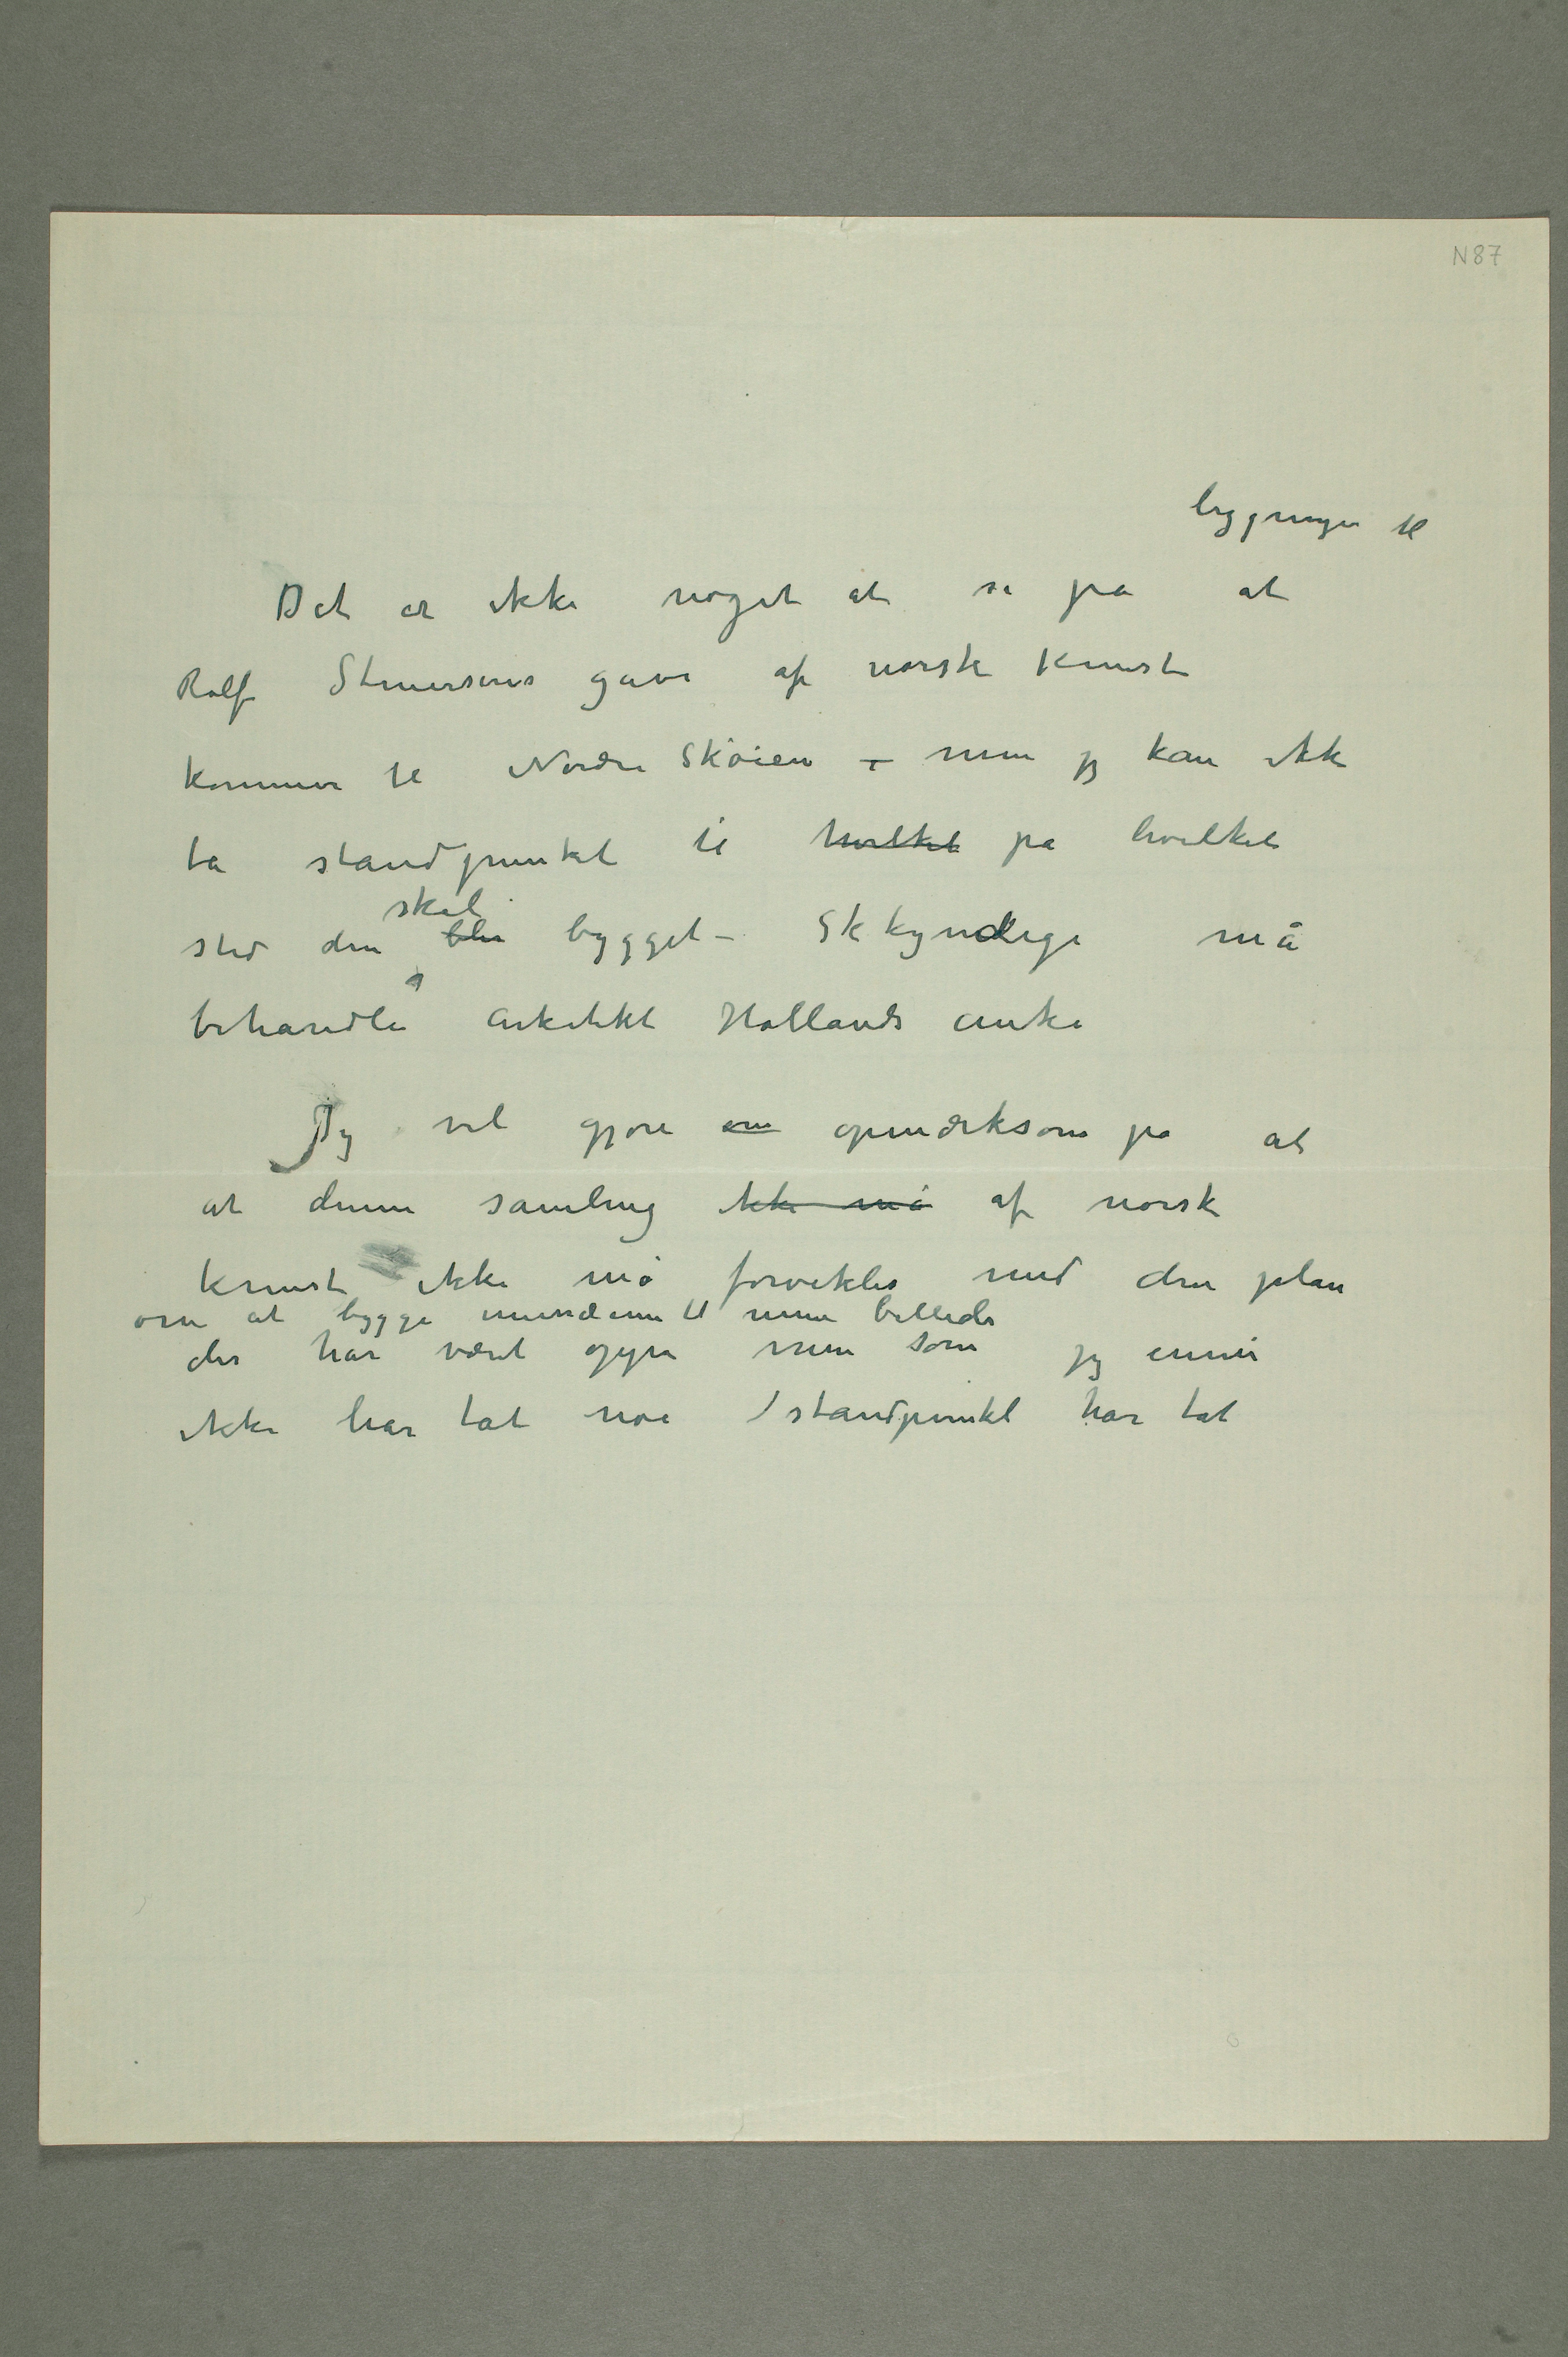 N87
bygningen til
Det er ikke noget at si på at
Rolf Stenersens gave af norsk kunst
kommer til Nordre Skøien – men jeg kan ikke
ta standpunktet til hvilket på hvilket
skal
sted den blir bygget – Skkyndige må
behandle arkitekt Hollands anke
Jeg vil gjøre om opmærksom på at
at denne samling ikke må af norsk
kunst ikke må forvekles med den plan
om at bygge musæum til mine billeder
der har været oppe men som jeg ennu
ikke har tat noe / standpunkt har tat